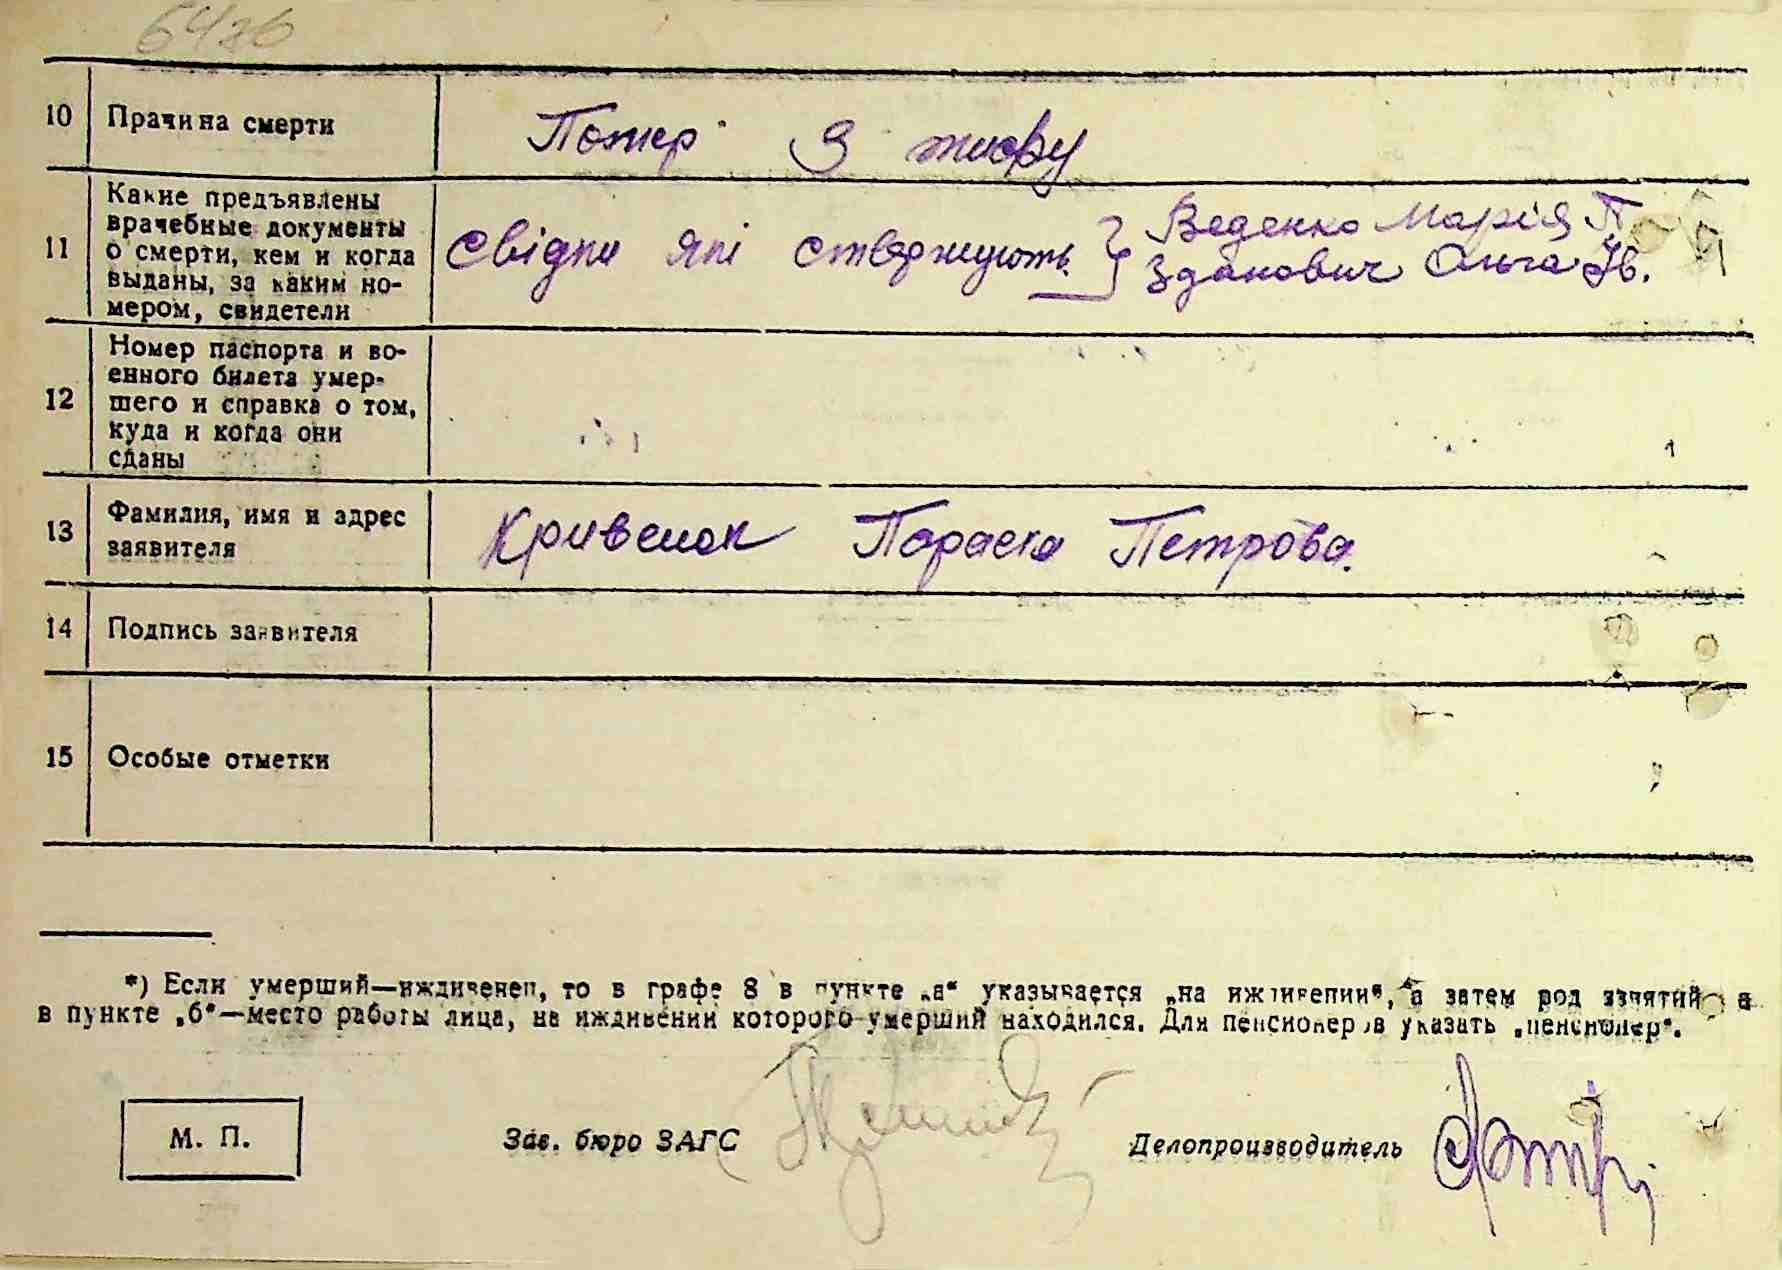 10 Прачина смерти
Помер З тифу
11 Какие предъявлены
врачебные документы
о смерти, кем и когда
выданы, за каким но-
мером, свидетели
Свідки які ствержують
Веденко Марія П
Зданович Ольга Ів.
12 Номер паспорта и во-
енного билета умер-
шего и справка о том,
куда и когда они
сданы
13 Фамилия, имя и адрес
заявителя
Параска Петрова.
14 Подпись заявителя
15 Особые отметки
*) Если умерший—иждивенец, то в графе 8 в пункте „а“ указывается „на иждивении“, а затем род занятий а
в пункте „б“—место работы лица, на иждивении которого умерший находился. Для пенсионеров указать „пенсионер“.
М. П.
Зав. бюро ЗАГС
Делопроизводитель